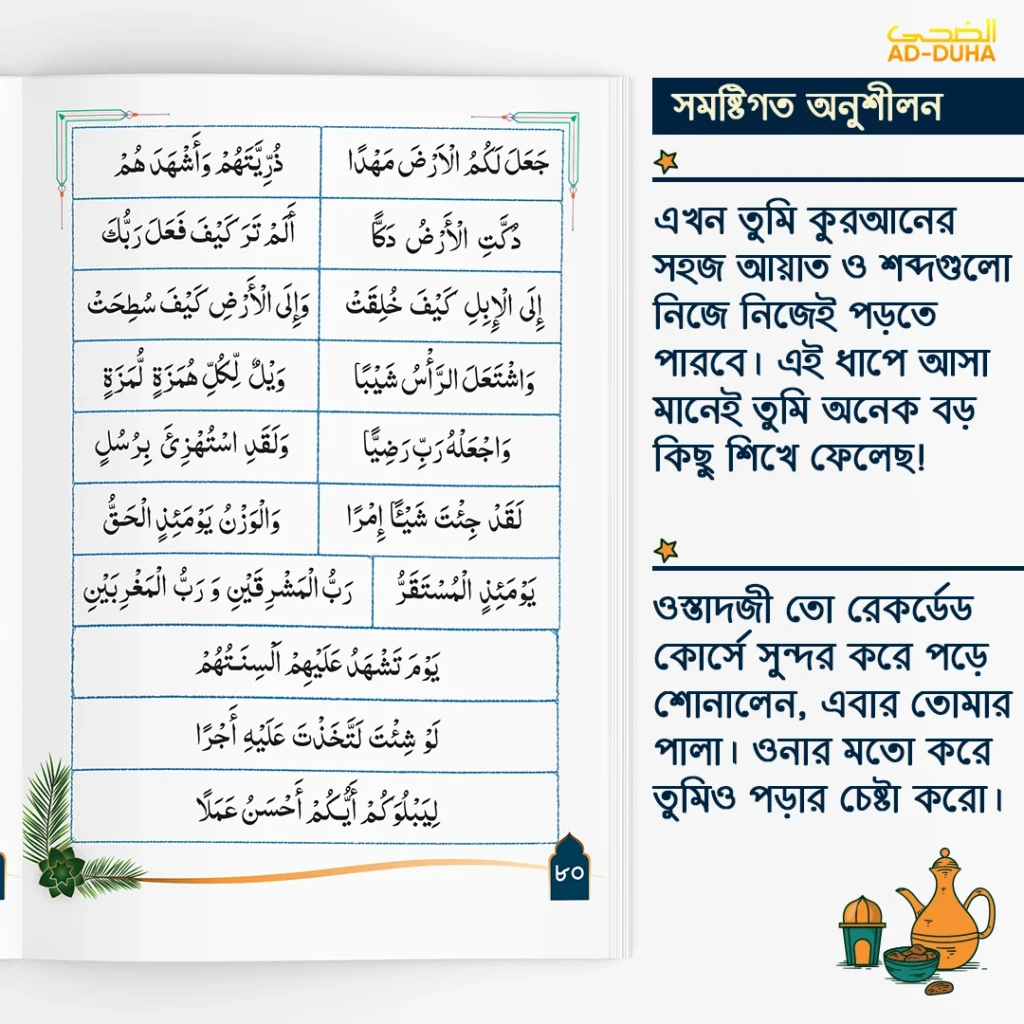 الضحى
AD-DUHA
সমষ্টিগত অনুশীলন
এখন তুমি কুরআনের
সহজ আয়াত ও শব্দগুলো
নিজে নিজেই পড়তে
পারবে। এই ধাপে আসা
মানেই তুমি অনেক বড়
কিছু শিখে ফেলেছ!
ওস্তাদজী তো রেকর্ডেড
কোর্সে সুন্দর করে পড়ে
শোনালেন, এবার তোমার
পালা। ওনার মতো করে
তুমিও পড়ার চেষ্টা করো।
جَعَلَ لَكُمُ الْاَرْضَ مَهْدًا
ذُرِّيَّتَهُمْ وَأَشْهَدَ هُمْ
دُكَّتِ الْأَرْضُ دَكًّا
أَلَمْ تَرَ كَيْفَ فَعَلَ رَبُّكَ
إِلَى الْإِبِلِ كَيْفَ خُلِقَتْ
وَإِلَى الْأَرْضِ كَيْفَ سُطِحَتْ
وَاشْتَعَلَ الرَّأْسُ شَيْبًا
وَيْلٌ لِّكُلِّ هُمَزَةٍ لُّمَزَةٍ
وَاجْعَلْهُ رَبِّ رَضِيًّا
وَلَقَدِ اسْتُهْزِئَ بِرُسُلٍ
لَقَدْ جِئْتَ شَيْئًا إِمْرًا
وَالْوَزْنُ يَوْمَئِذٍ الْحَقُّ
يَوْمَئِذٍ الْمُسْتَقَرُّ
رَبُّ الْمَشْرِقَيْنِ وَ رَبُّ الْمَغْرِبَيْنِ
يَوْمَ تَشْهَدُ عَلَيْهِمْ اَلْسِنَتُهُمْ
لَوْ شِئْتَ لَتَّخَذْتَ عَلَيْهِ أَجْرًا
لِيَبْلُوَكُمْ أَيُّكُمْ أَحْسَنُ عَمَلًا
৮০